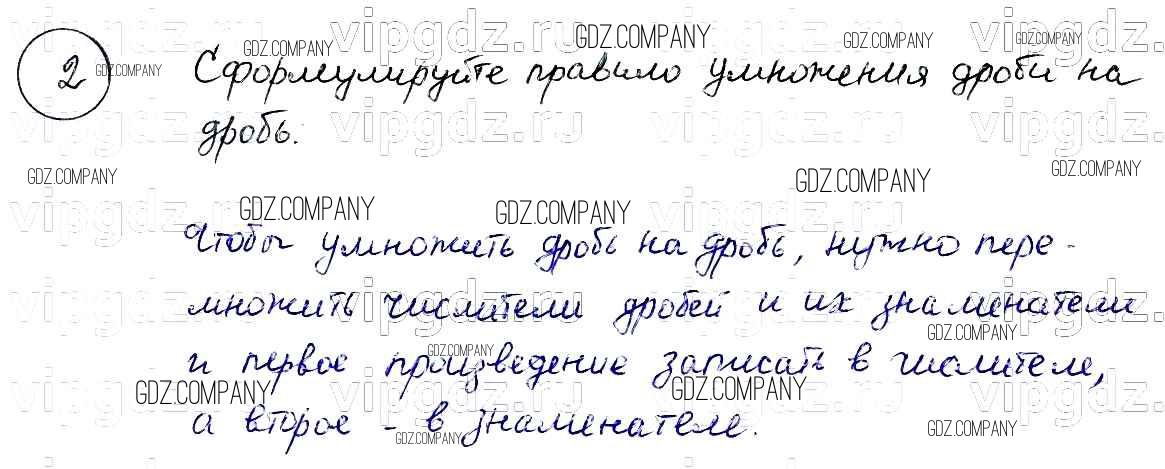 2 Сформулируйте правило умножения дроби на
дробь.
Чтобы умножить дробь на дробь, нужно пере-
множить числители дробей и их знаменатели
и первое произведение записать в числителе,
а второе - в знаменателе.
vipgdz.ru
GDZ.COMPANY